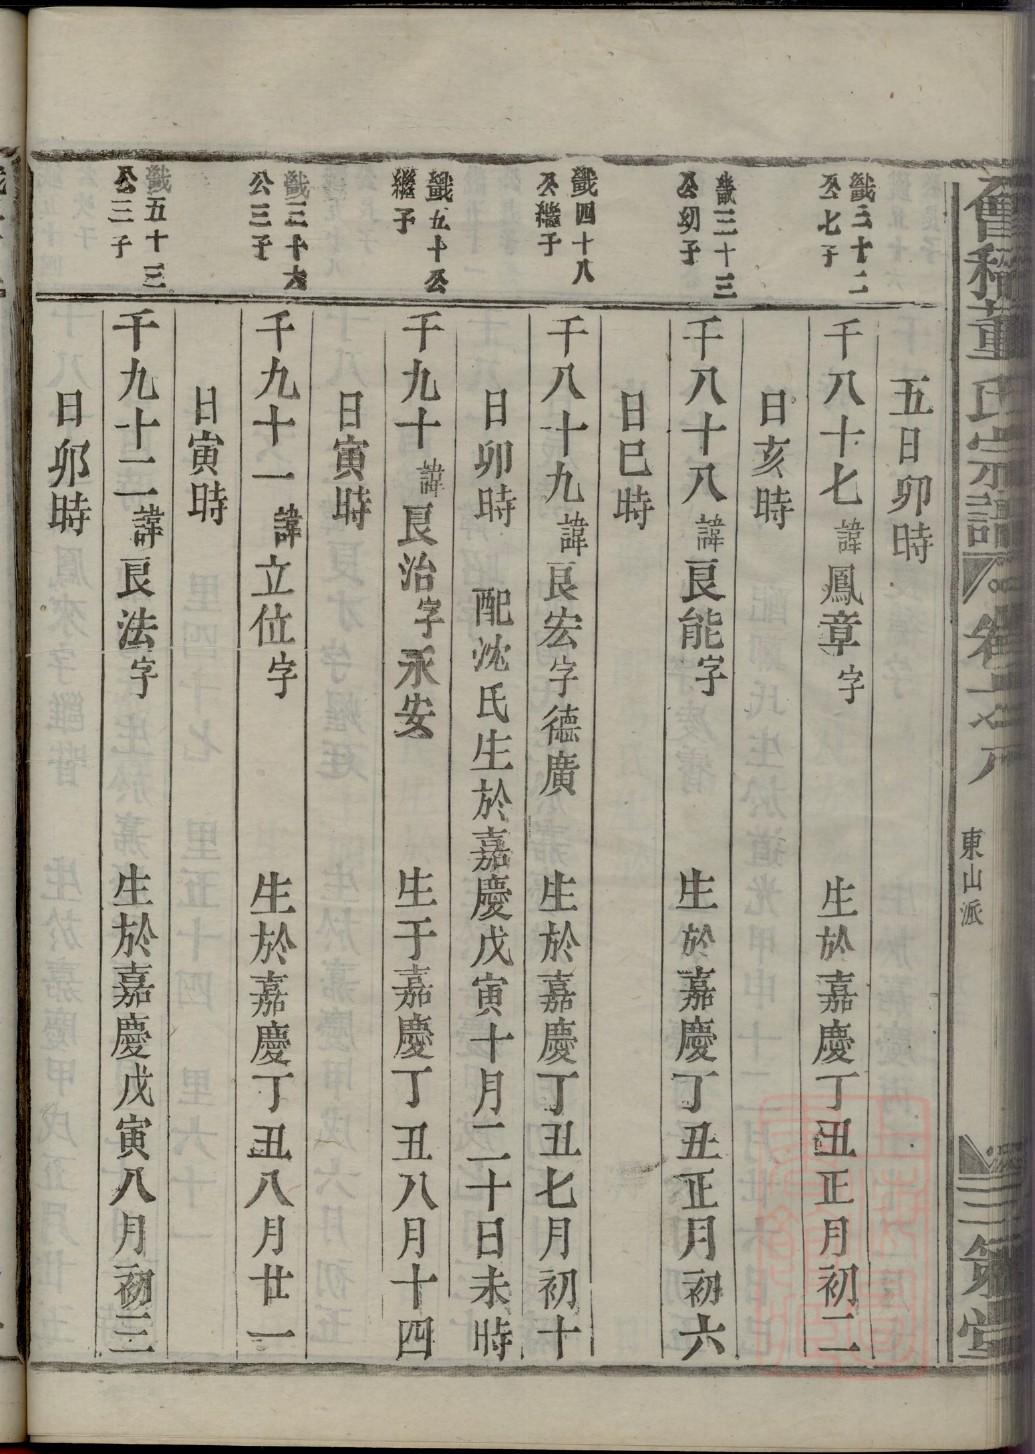 會稽董氏宗譜
東山派
三策堂
五日卯時
戩三十二
公七子
千八十七 諱鳳章 字 生於嘉慶丁丑正月初二
日亥時
戩三十三
公幼子
千八十八 諱良能 字 生於嘉慶丁丑正月初六
日巳時
戩四十八
公繼子
千八十九 諱良宏 字德廣 生於嘉慶丁丑七月初十
日卯時 配沈氏生於嘉慶戊寅十月二十日未時
戩五十公
繼子
千九十 諱良治 字永安 生于嘉慶丁丑八月十四
日寅時
戩三十六
公三子
千九十一 諱立位 字 生於嘉慶丁丑八月廿一
日寅時
戩五十三
公三子
千九十二 諱良法 字 生於嘉慶戊寅八月初三
日卯時